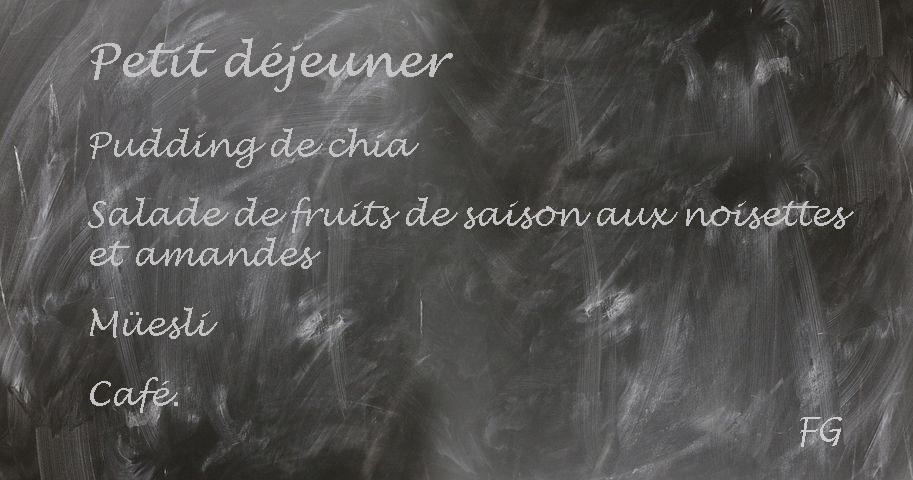 Petit déjeuner
Pudding de chia
Salade de fruits de saison aux noisettes
et amandes
Müesli
Café.
FG